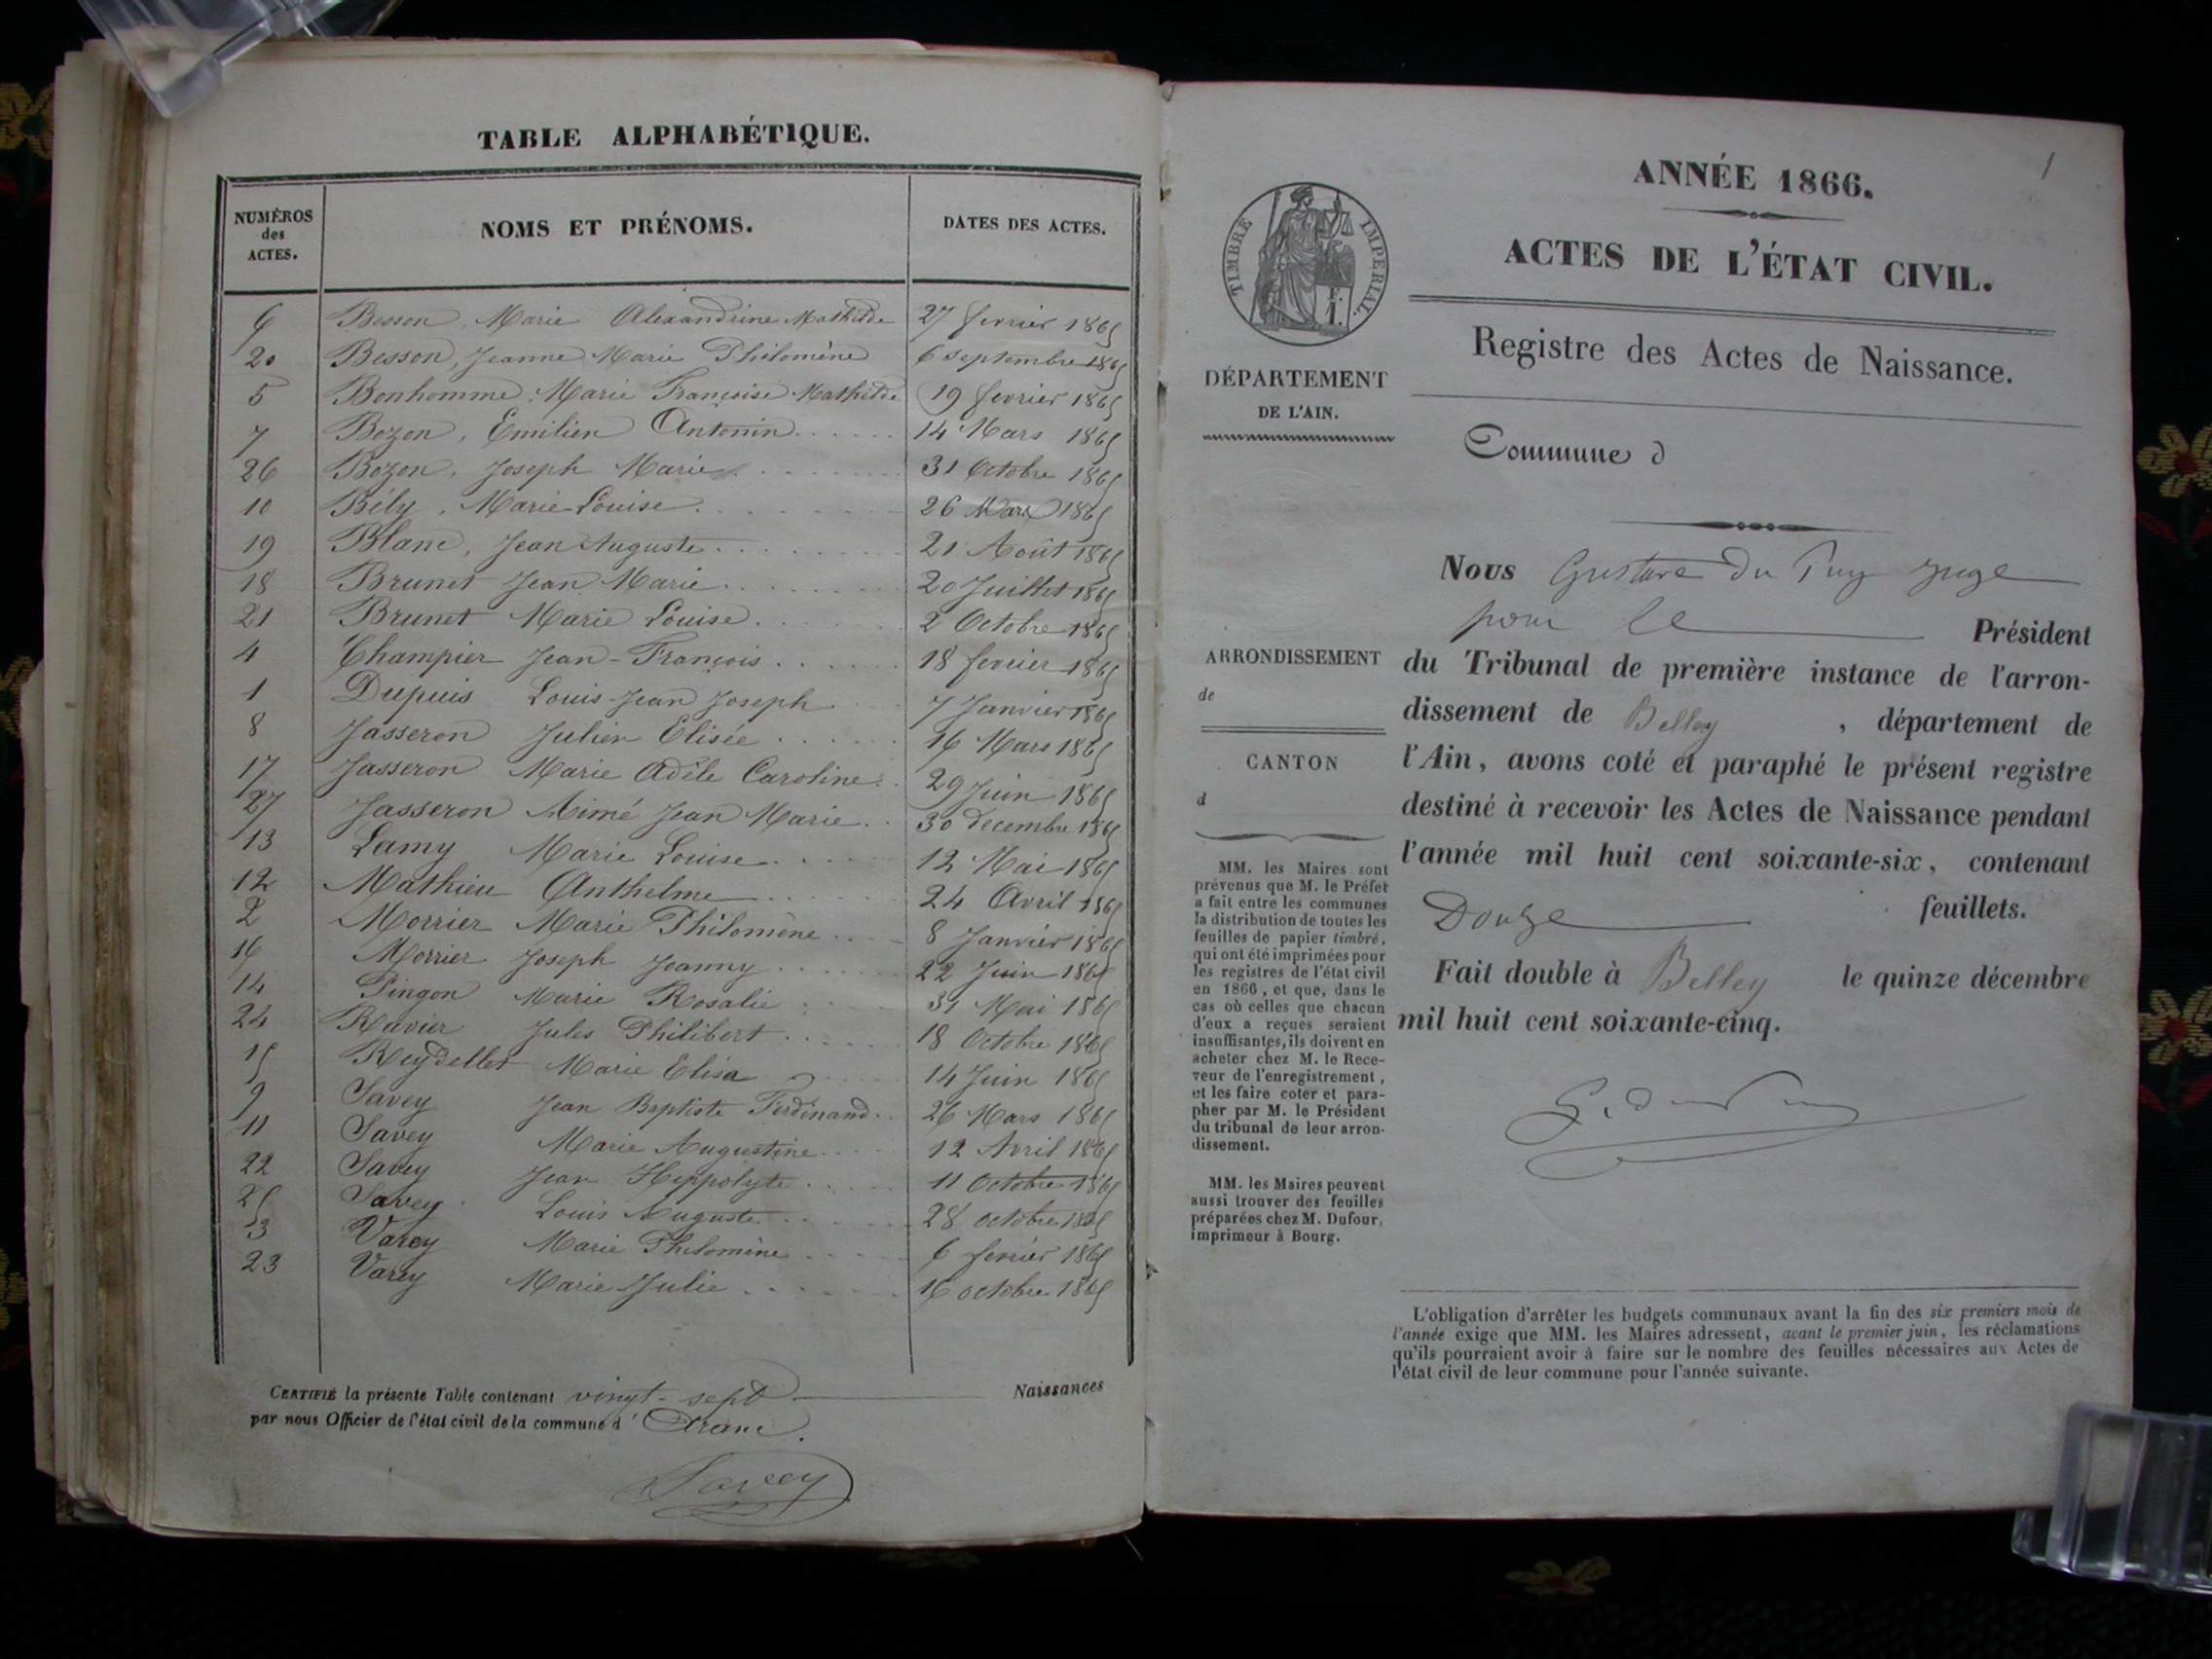 TABLE ALPHABÉTIQUE.
NUMÉROS des ACTES.
NOMS ET PRÉNOMS.
DATES DES ACTES.
6 Besson, Marie Alexandrine Mathilde 27 fevrier 1865
20 Besson, Jeanne Marie Philomène 6 septembre 1865
5 Bonhomme, Marie Françoise Mathilde 19 fevrier 1865
7 Bozon, Emilien Antonin 14 Mars 1865
26 Bozon, Joseph Marie 31 Octobre 1865
10 Bély, Marie Louise 26 Mars 1865
19 Blanc, Jean Auguste 21 Août 1865
18 Brunet Jean Marie 20 Juillet 1865
21 Brunet Marie Louise 2 Octobre 1865
4 Champier Jean-François 18 fevrier 1865
1 Dupuis Louis Jean Joseph 7 Janvier 1865
8 Jasseron Julien Elisée 16 Mars 1865
17 Jasseron Marie Adèle Caroline 29 Juin 1865
27 Jasseron Aimé Jean Marie 30 decembre 1865
13 Lamy Marie Louise 12 Mai 1865
12 Mathieu Anthelme 24 Avril 1865
2 Morrier Marie Philomène 8 Janvier 1865
16 Morrier Joseph Joanny 22 Juin 1865
14 Pingon Marie Rosalie 31 Mai 1865
24 Ravier Jules Philibert 18 Octobre 1865
15 Reydellet Marie Elisa 14 Juin 1865
9 Savey Jean Baptiste Ferdinand 26 Mars 1865
11 Savey Marie Augustine 12 Avril 1865
22 Savey Jean Hippolyte 11 Octobre 1865
25 Savey Louis Auguste 28 octobre 1865
3 Varey Marie Philomène 6 fevrier 1865
23 Varey Marie Julie 16 octobre 1865
CERTIFIÉ la présente Table contenant vingt-sept Naissances
par nous Officier de l'état civil de la commune d' Aranc.
Savey
1
ANNÉE 1866.
ACTES DE L'ÉTAT CIVIL.
Registre des Actes de Naissance.
TIMBRE IMPÉRIAL.
DÉPARTEMENT
DE L'AIN.
Commune d
Nous Gustave du Puy juge
pour le Président
du Tribunal de première instance de l'arron-
dissement de Belley, département de
l'Ain, avons coté et paraphé le présent registre
destiné à recevoir les Actes de Naissance pendant
l'année mil huit cent soixante-six, contenant
Douze feuillets.
Fait double à Belley le quinze décembre
mil huit cent soixante-cinq.
G. du Puy
ARRONDISSEMENT
de
CANTON
d
MM. les Maires sont
prévenus que M. le Préfet
a fait entre les communes
la distribution de toutes les
feuilles de papier timbré,
qui ont été imprimées pour
les registres de l'état civil
en 1866, et que, dans le
cas où celles que chacun
d'eux a reçues seraient
insuffisantes, ils doivent en
acheter chez M. le Rece-
veur de l'enregistrement,
et les faire coter et para-
pher par M. le Président
du tribunal de leur arron-
dissement.
MM. les Maires peuvent
aussi trouver des feuilles
préparées chez M. Dufour,
imprimeur à Bourg.
L'obligation d'arrêter les budgets communaux avant la fin des six premiers mois de
l'année exige que MM. les Maires adressent, avant le premier juin, les réclamations
qu'ils pourraient avoir à faire sur le nombre des feuilles nécessaires aux Actes de
l'état civil de leur commune pour l'année suivante.